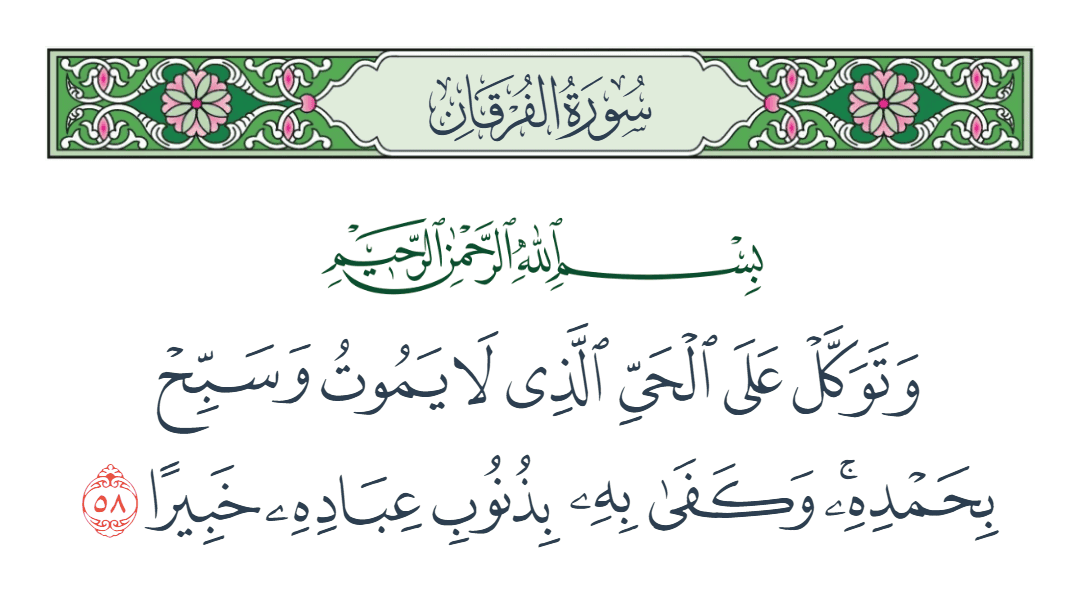 سُورَةُ الْفُرْقَانِ
بِسْمِ ٱللَّهِ ٱلرَّحْمَٰنِ ٱلرَّحِيمِ
وَتَوَكَّلْ عَلَى ٱلْحَىِّ ٱلَّذِى لَا يَمُوتُ وَسَبِّحْ
بِحَمْدِهِۦ ۚ وَكَفَىٰ بِهِۦ بِذُنُوبِ عِبَادِهِۦ خَبِيرًا ٥٨